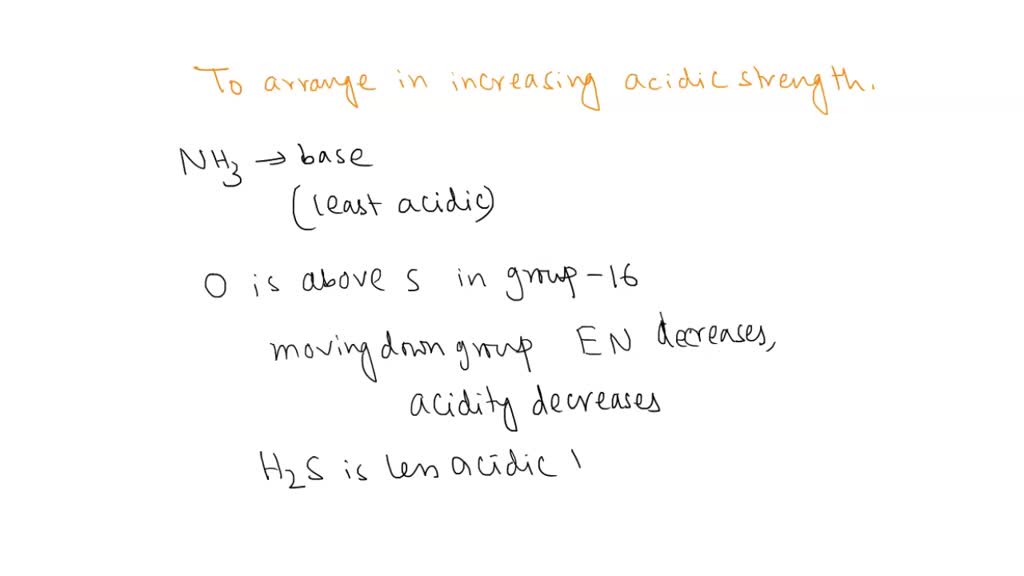 To arrange in increasing acidic strength.
NH3 → base
(least acidic)
O is above S in group-16
moving down group EN decreases,
acidity decreases
H2S is less acidic